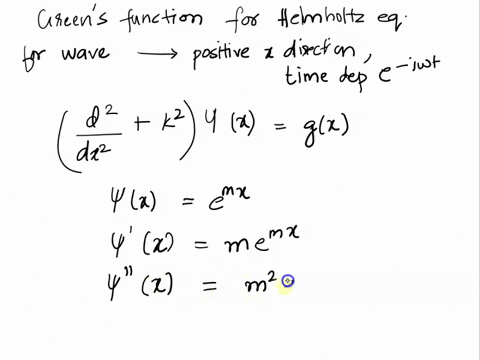 Green's function for Helmholtz eq.
for wave → positive x direction,
time dep e^{-iωt}
(d²/dx² + k²) ψ(x) = g(x)
ψ(x) = e^{mx}
ψ'(x) = m e^{mx}
ψ''(x) = m²